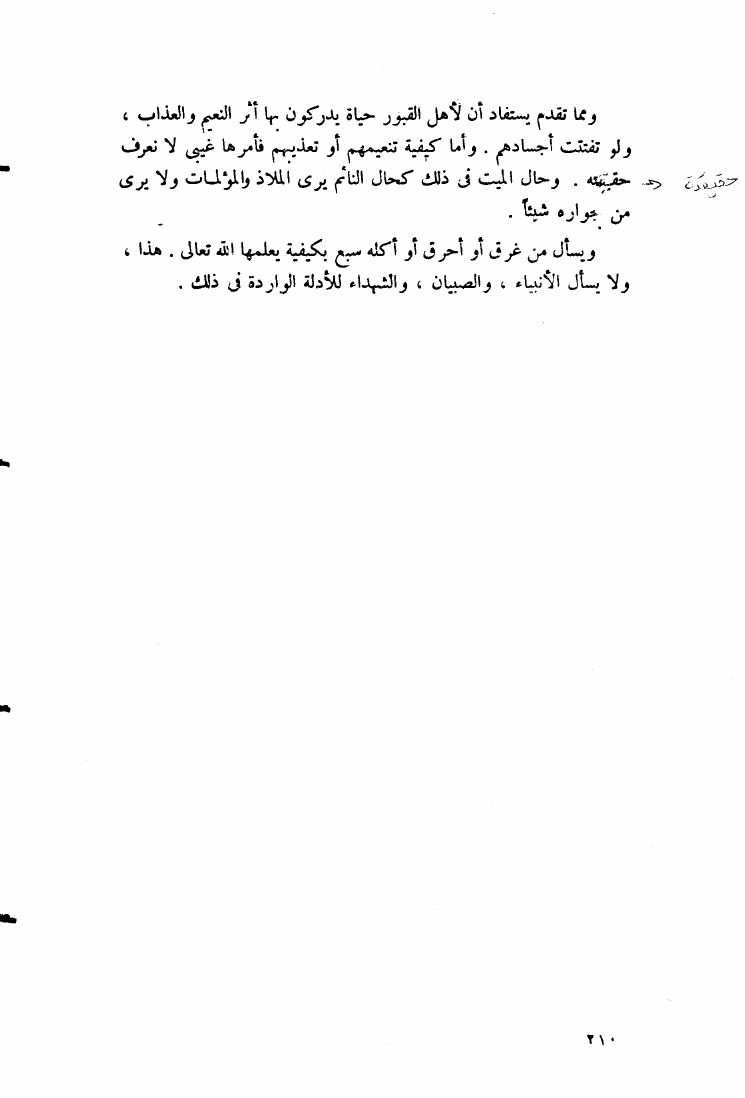 ومما تقدم يستفاد أن لأهل القبور حياة يدركون بها أثر النعيم والعذاب ،
ولو تفتتت أجسادهم . وأما كيفية تنعيمهم أو تعذيبهم فأمرها غيبى لا نعرف
حقيقته . وحال الميت فى ذلك كحال النائم يرى الملاذ والمؤلمات ولا يرى
من جواره شيئاً .
ويسأل من غرق أو أحرق أو أكله سبع بكيفية يعلمها الله تعالى . هذا ،
ولا يسأل الأنبياء ، والصبيان ، والشهداء للأدلة الواردة فى ذلك .
٢١٠